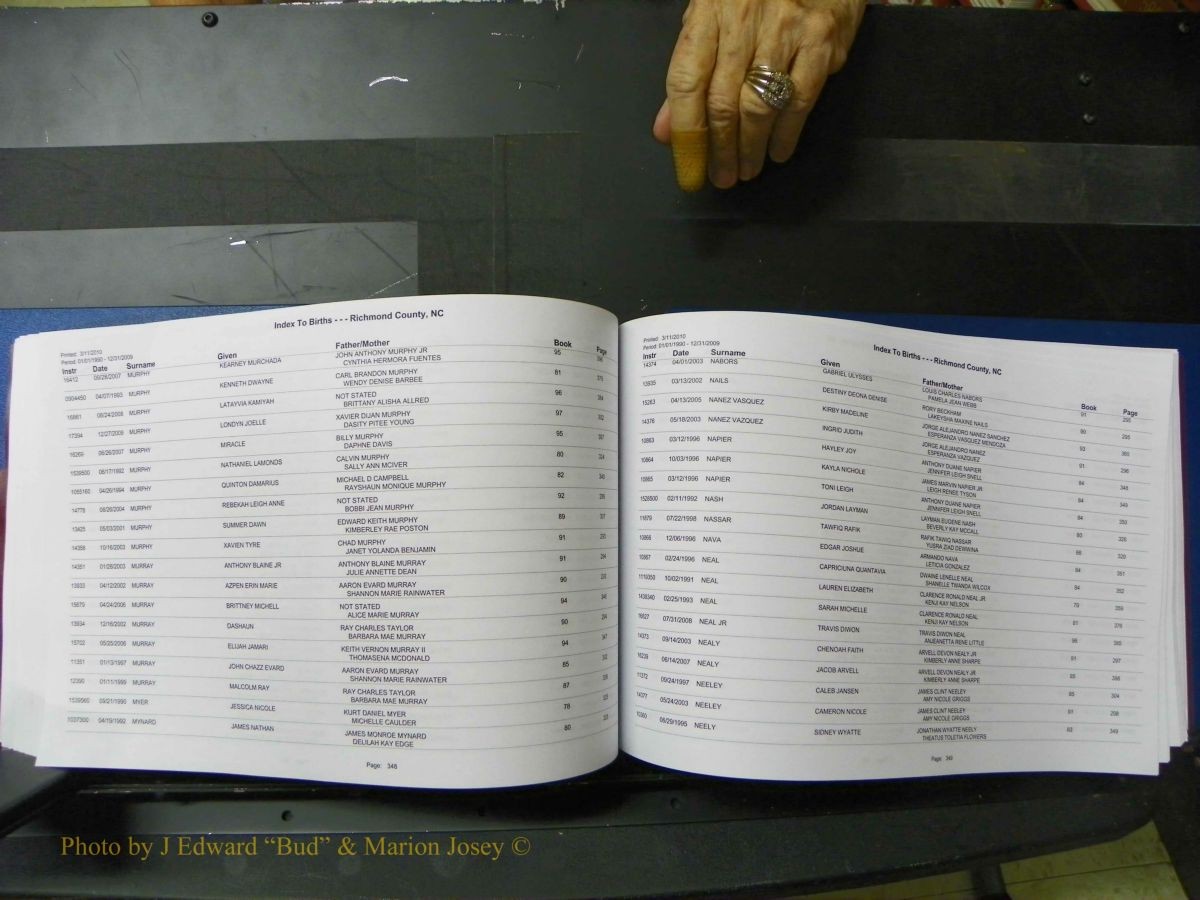 Index To Births - - - Richmond County, NC
Printed: 3/11/2010
Period: 01/01/1990 - 12/31/2009
Instr Date Surname Given Father/Mother Book Page
16412 09/28/2007 MURPHY KEARNEY MURCHADA JOHN ANTHONY MURPHY JR 95
CYNTHIA HERMORA FUENTES
0904450 04/07/1993 MURPHY KENNETH DWAYNE CARL BRANDON MURPHY 81
WENDY DENISE BARBEE
16861 08/24/2008 MURPHY LATAYVIA KAMIYAH NOT STATED 96
BRITTANY ALISHA ALLRED
17394 12/27/2009 MURPHY LONDYN JOELLE XAVIER DIJAN MURPHY 97
DASITY PITEE YOUNG
16269 06/26/2007 MURPHY MIRACLE BILLY MURPHY 95
DAPHNE DAVIS
1539500 06/17/1992 MURPHY NATHANIEL LAMONDS CALVIN MURPHY 80
SALLY ANN MCIVER
1055160 04/26/1994 MURPHY QUINTON DAMARIUS MICHAEL D CAMPBELL 82
RAYSHAUN MONIQUE MURPHY
14778 08/26/2004 MURPHY REBEKAH LEIGH ANNE NOT STATED 92
BOBBI JEAN MURPHY
13425 05/03/2001 MURPHY SUMMER DAWN EDWARD KEITH MURPHY 89
KIMBERLEY RAE POSTON
14356 10/16/2003 MURPHY XAVIEN TYRE CHAD MURPHY 91
JANET YOLANDA BENJAMIN
14351 01/28/2003 MURRAY ANTHONY BLAINE JR ANTHONY BLAINE MURRAY 91
JULIE ANNETTE DEAN
13933 04/12/2002 MURRAY AZPEN ERIN MARIE AARON EVARD MURRAY 90
SHANNON MARIE RAINWATER
15679 04/24/2006 MURRAY BRITTNEY MICHELL NOT STATED 94
ALICE MARIE MURRAY
13934 12/16/2002 MURRAY DASHAUN RAY CHARLES TAYLOR 90
BARBARA MAE MURRAY
15702 05/25/2006 MURRAY ELIJAH JAMARI KEITH VERNON MURRAY II 94
THOMASENA MCDONALD
11351 01/13/1997 MURRAY JOHN CHAZZ EVARD AARON EVARD MURRAY 85
SHANNON MARIE RAINWATER
12390 01/11/1999 MURRAY MALCOLM RAY RAY CHARLES TAYLOR 87
BARBARA MAE MURRAY
1539560 09/21/1990 MYER JESSICA NICOLE KURT DANIEL MYER 78
MICHELLE CAULDER
1037300 04/19/1992 MYNARD JAMES NATHAN JAMES MONROE MYNARD 80
DELILAH KAY EDGE
Page: 348
Index To Births - - - Richmond County, NC
Printed: 3/11/2010
Period: 01/01/1990 - 12/31/2009
Instr Date Surname Given Father/Mother Book Page
14374 04/01/2003 NABORS GABRIEL ULYSSES LOUIS CHARLES NABORS 91 295
PAMELA JEAN WEBB
13935 03/13/2002 NAILS DESTINY DEONA DENISE RORY BECKHAM 90 295
LAKEYSHA MAXINE NAILS
15263 04/13/2005 NANEZ VASQUEZ KIRBY MADELINE JORGE ALEJANDRO NANEZ SANCHEZ 93
ESPERANZA VASQUEZ MENDOZA
14376 05/18/2003 NANEZ VAZQUEZ INGRID JUDITH JORGE ALEJANDRO NANEZ 91 296
ESPERANZA VAZQUEZ
10863 03/12/1996 NAPIER HAYLEY JOY ANTHONY DUANE NAPIER 84 348
JENNIFER LEIGH SNELL
10864 10/03/1996 NAPIER KAYLA NICHOLE JAMES MARVIN NAPIER JR 84 349
LEIGH RENEE TYSON
10865 03/12/1996 NAPIER TONI LEIGH ANTHONY DUANE NAPIER 84 350
JENNIFER LEIGH SNELL
1528500 02/11/1992 NASH JORDAN LAYMAN LAYMAN EUGENE NASH 80 326
BEVERLY KAY MCCALL
11879 07/22/1998 NASSAR TAWFIQ RAFIK RAFIK TAWIQ NASSAR 86 329
YUSRA ZIAD DEWWINA
10866 12/06/1996 NAVA EDGAR JOSHUE ARMANDO NAVA 84 351
LETICIA GONZALEZ
10867 02/24/1996 NEAL CAPRICIUNA QUANTAVIA DWAINE LENELLE NEAL 84 352
SHANELLE TWANDA WILCOX
1119350 10/02/1991 NEAL LAUREN ELIZABETH CLARENCE RONALD NEAL JR 79 359
KENJI KAY NELSON
1439340 02/25/1993 NEAL SARAH MICHELLE CLARENCE RONALD NEAL 81 378
KENJI KAY NELSON
16827 07/31/2008 NEAL JR TRAVIS DIWON TRAVIS DIWON NEAL 96 385
ANJEANETTA RENE LITTLE
14373 09/14/2003 NEALY CHENOAH FAITH ARVELL DEVON NEALY JR 91 297
KIMBERLY ANNE SHARPE
16239 06/14/2007 NEALY JACOB ARVELL ARVELL DEVON NEALY JR 95
KIMBERLY ANNE SHARPE
11372 09/24/1997 NEELEY CALEB JANSEN JAMES CLINT NEELEY 85 304
AMY NICOLE GRIGGS
14077 05/24/2003 NEELEY CAMERON NICOLE JAMES CLINT NEELEY 91 298
AMY NICOLE GRIGGS
10360 06/29/1995 NEELY SIDNEY WYATTE JONATHAN WYATTE NEELY 83 349
THEATUS TOLETIA FLOWERS
Page: 349
Photo by J Edward “Bud” & Marion Josey ©